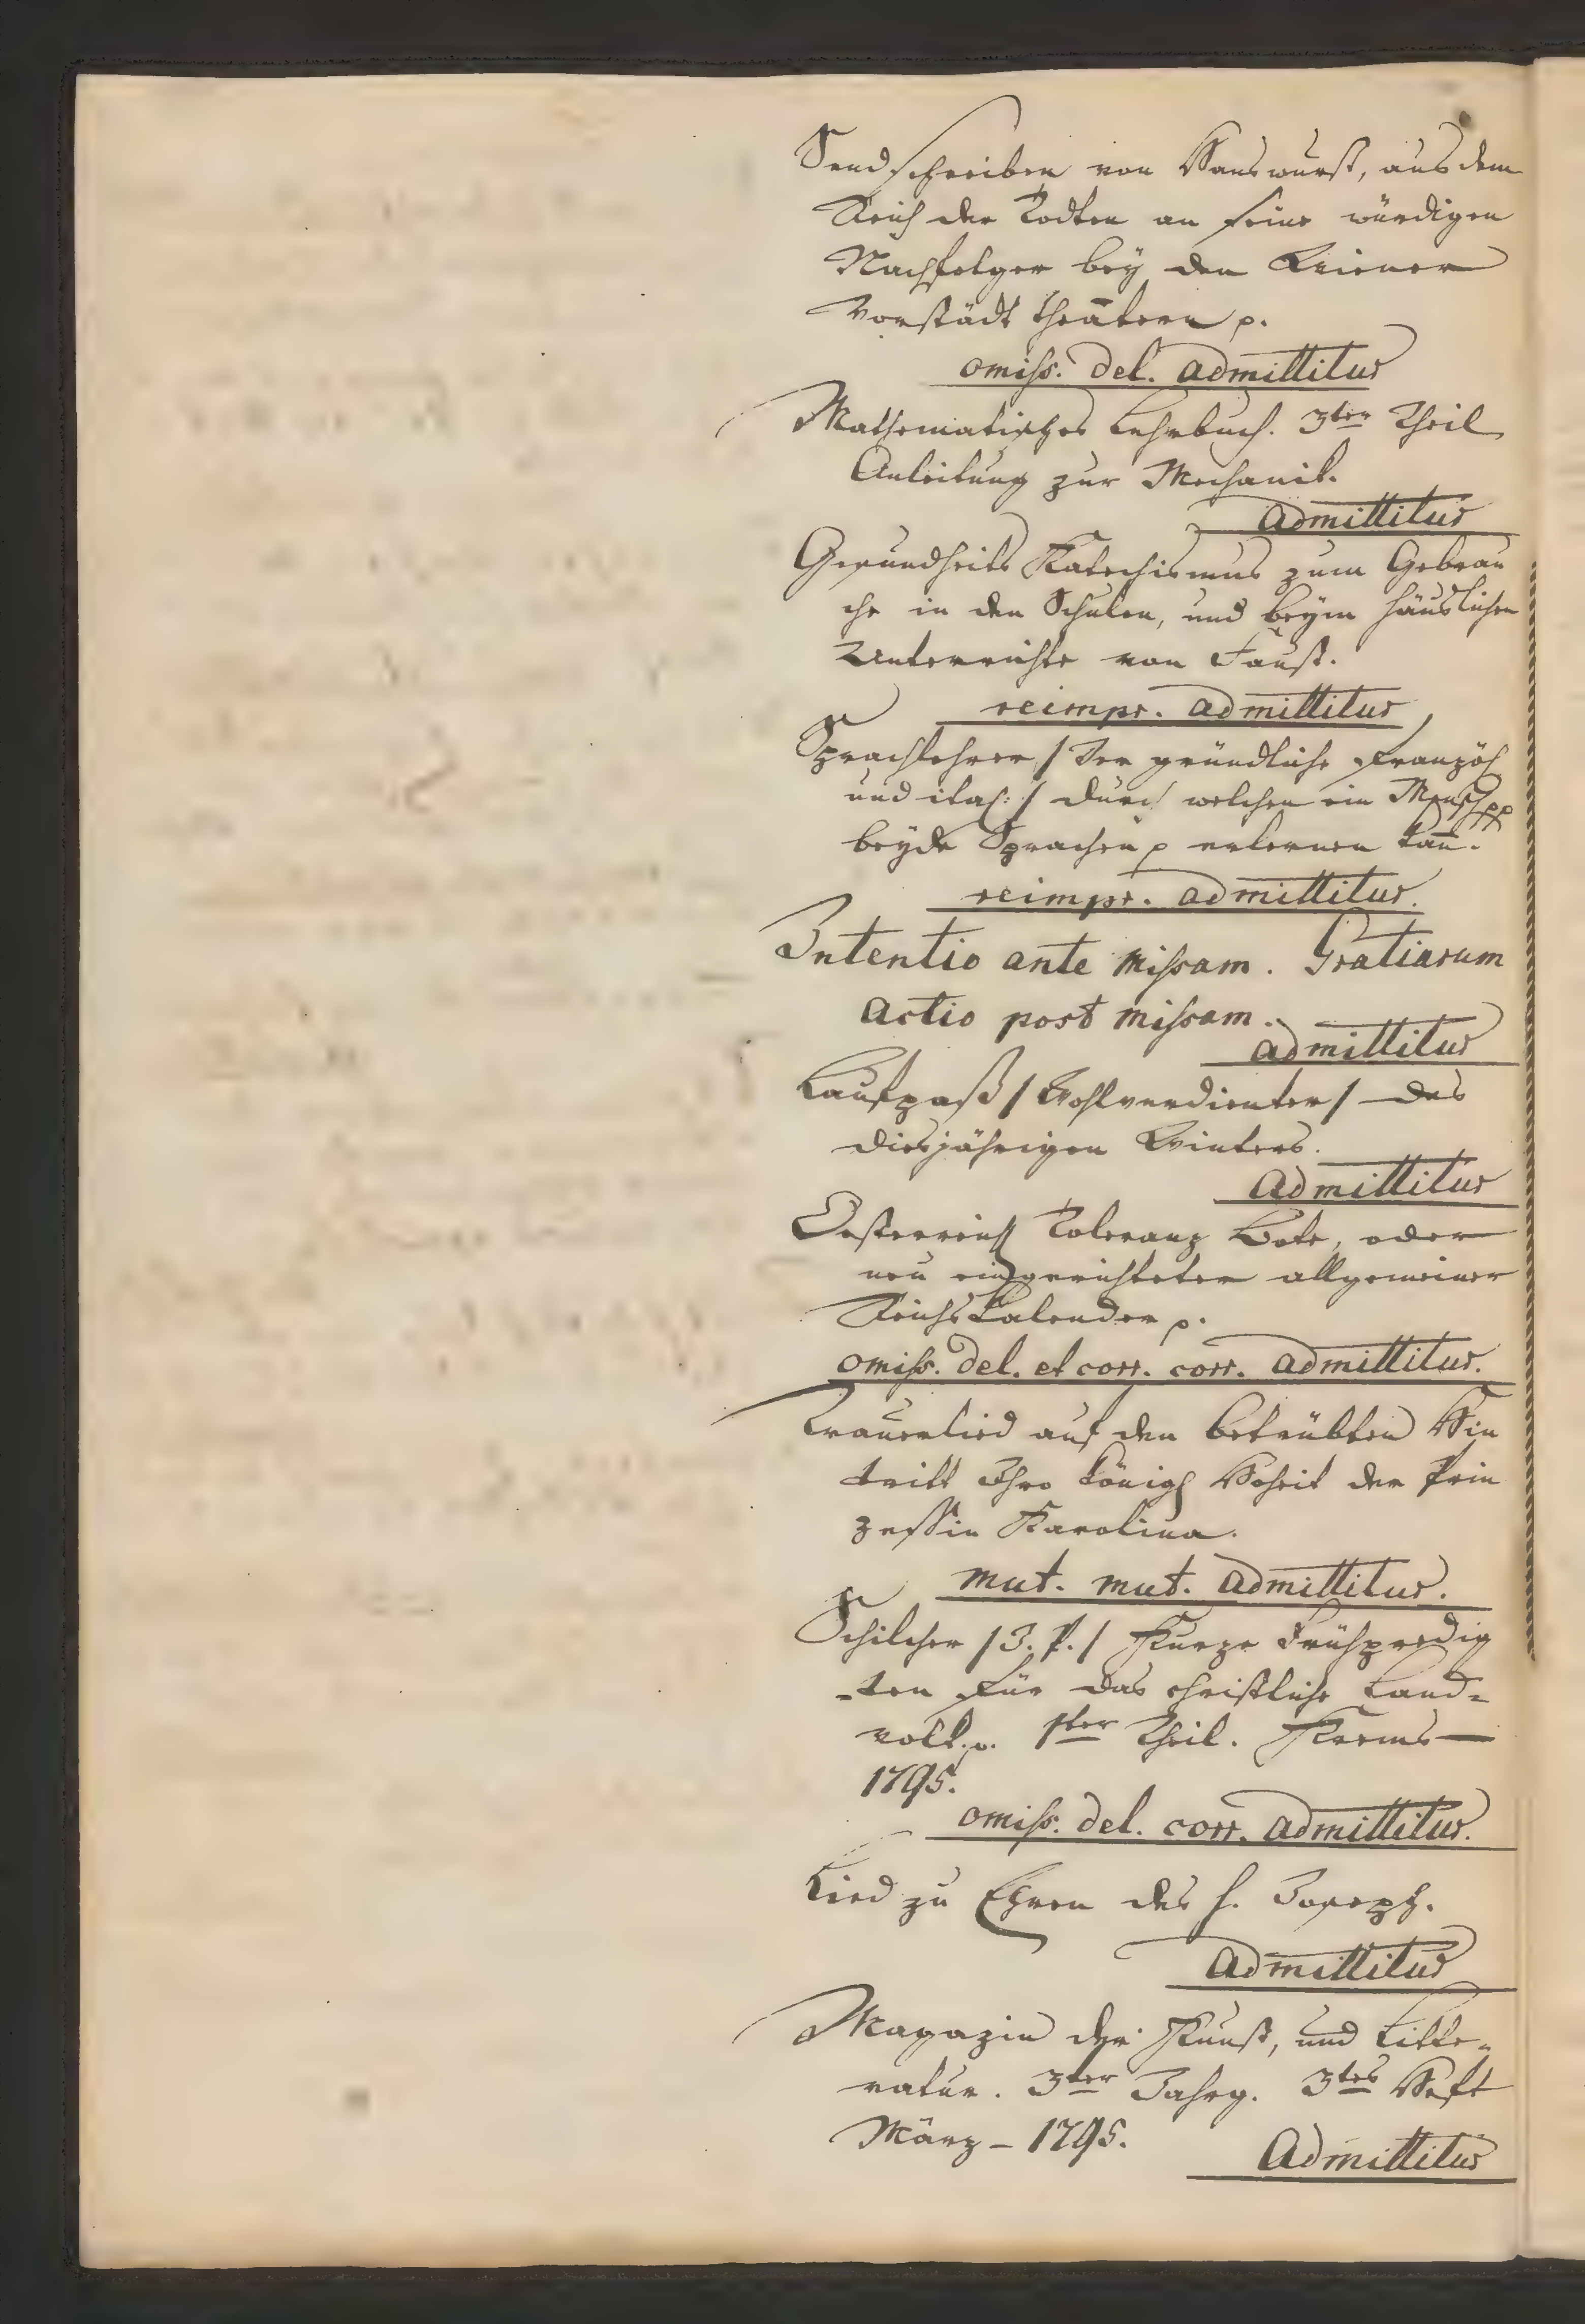 Sendschreiben von Hanswurst, aus dem
Reich der Todten an seine würdigen
Nachfolger bey den Wiener
Vorstädt Theatern p.
omiss. del. admittitur
Mathematisches Lehrbuch. 3ter Theil
Anleitung zur Mechanik.
admittitur
Gesundheits Katechismus zum Gebrau
che in den Schulen, und beym häuslichen
Unterrichte von Faust.
reimpr. admittitur
Sprachlehrer / Der gründliche Französ.
und ital: / durch welchen ein Mensch pp
beyde Sprachen p erlernen kan̄.
reimpr. admittitur.
Intentio ante missam. Gratiarum
actio post missam.
admittitur
Laufpaß / Wohlverdienter / des
diesjährigen Winters.
Admittitur
Oesterreich Toleranz Bote, oder
neu eingerichteter allgemeiner
Reichs Kalender p.
omiss. del. et corr. corr. admittitur.
Trauerlied auf den betrübten Hin
tritt Ihro königl Hoheit der Prin
zessin Karolina.
mut. mut. admittitur.
Schilcher / J. P. / Kurze Frühpredig
-ten für das christliche Land-
volk p. 1ter Theil. Krems
1795.
omiss. del. corr. admittitur.
Lied zu Ehren des h. Joseph.
Admittitur
Magazin der Kunst, und Litte-
ratur. 3ter Jahrg. 3tes Heft
März - 1795.
Admittitur